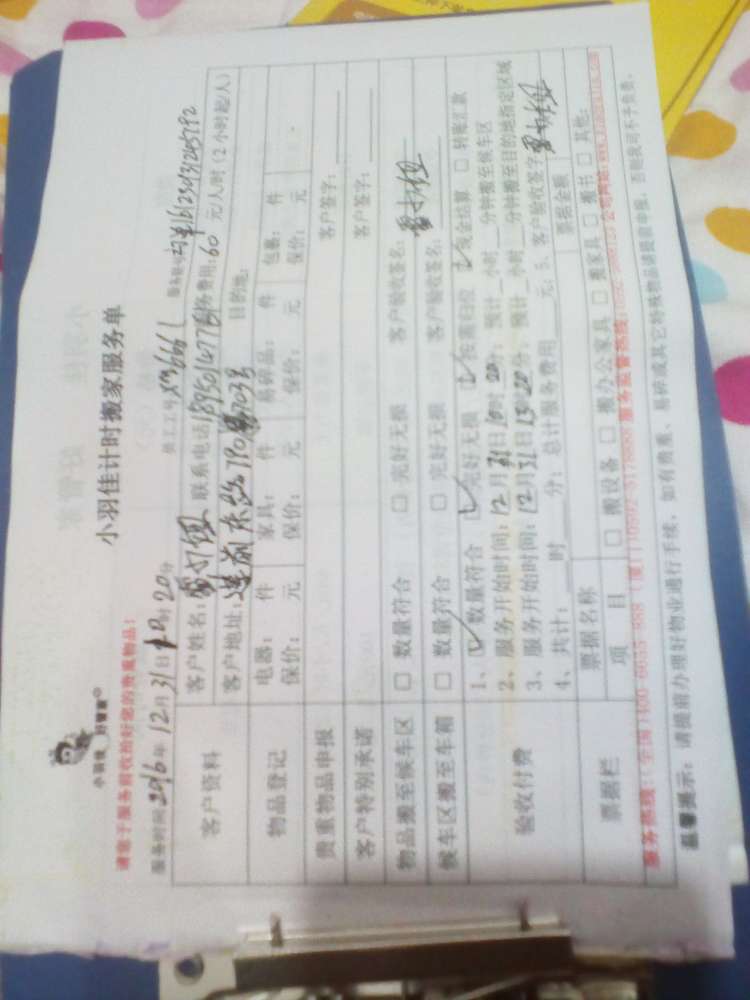 小羽佳 好管家
小羽佳计时搬家服务单
请您于服务前收拾好您的贵重物品!
服务时间 2016年12月31日10时20分 员工工号 XM6661 服务账号
客户资料
客户姓名: 联系电话:18950147718 服务费用:60元/人/时(2小时起/人)
客户地址: 目的地:
物品登记
电器: 件 家具: 件 易碎品: 件 包裹: 件
保价: 元 保价: 元 保价: 元 保价: 元
贵重物品申报 客户签字:
客户特别承诺 客户签字:
物品搬至候车区 □ 数量符合 □ 完好无损 客户验收签名:
候车区搬至车箱 □ 数量符合 □ 完好无损 客户验收签名:
验收付费
1、☑ 数量符合 ☑ 完好无损 ☑ 按需归位 ☑ 现金结算 □ 转账汇款
2、服务开始时间:12月31日10时20分;预计__小时__分钟搬至候车区
3、服务开始时间:12月31日13时20分;预计__小时__分钟搬至目的地指定区域
4、共计:____时____分;总计服务费用____元;5、客户验收签字
票据栏
票据名称 票据金额
项 目 □ 搬设备 □ 搬办公家具 □ 搬家具 □ 搬书 □ 其他:
服务热线:(全国)400-6055-888 (厦门)0592-5178888 服务监督热线: 公司网站:
温馨提示:请提前办理好物业通行手续,如有贵重、易碎或其它特殊物品请提前申报,否则我司不予负责。